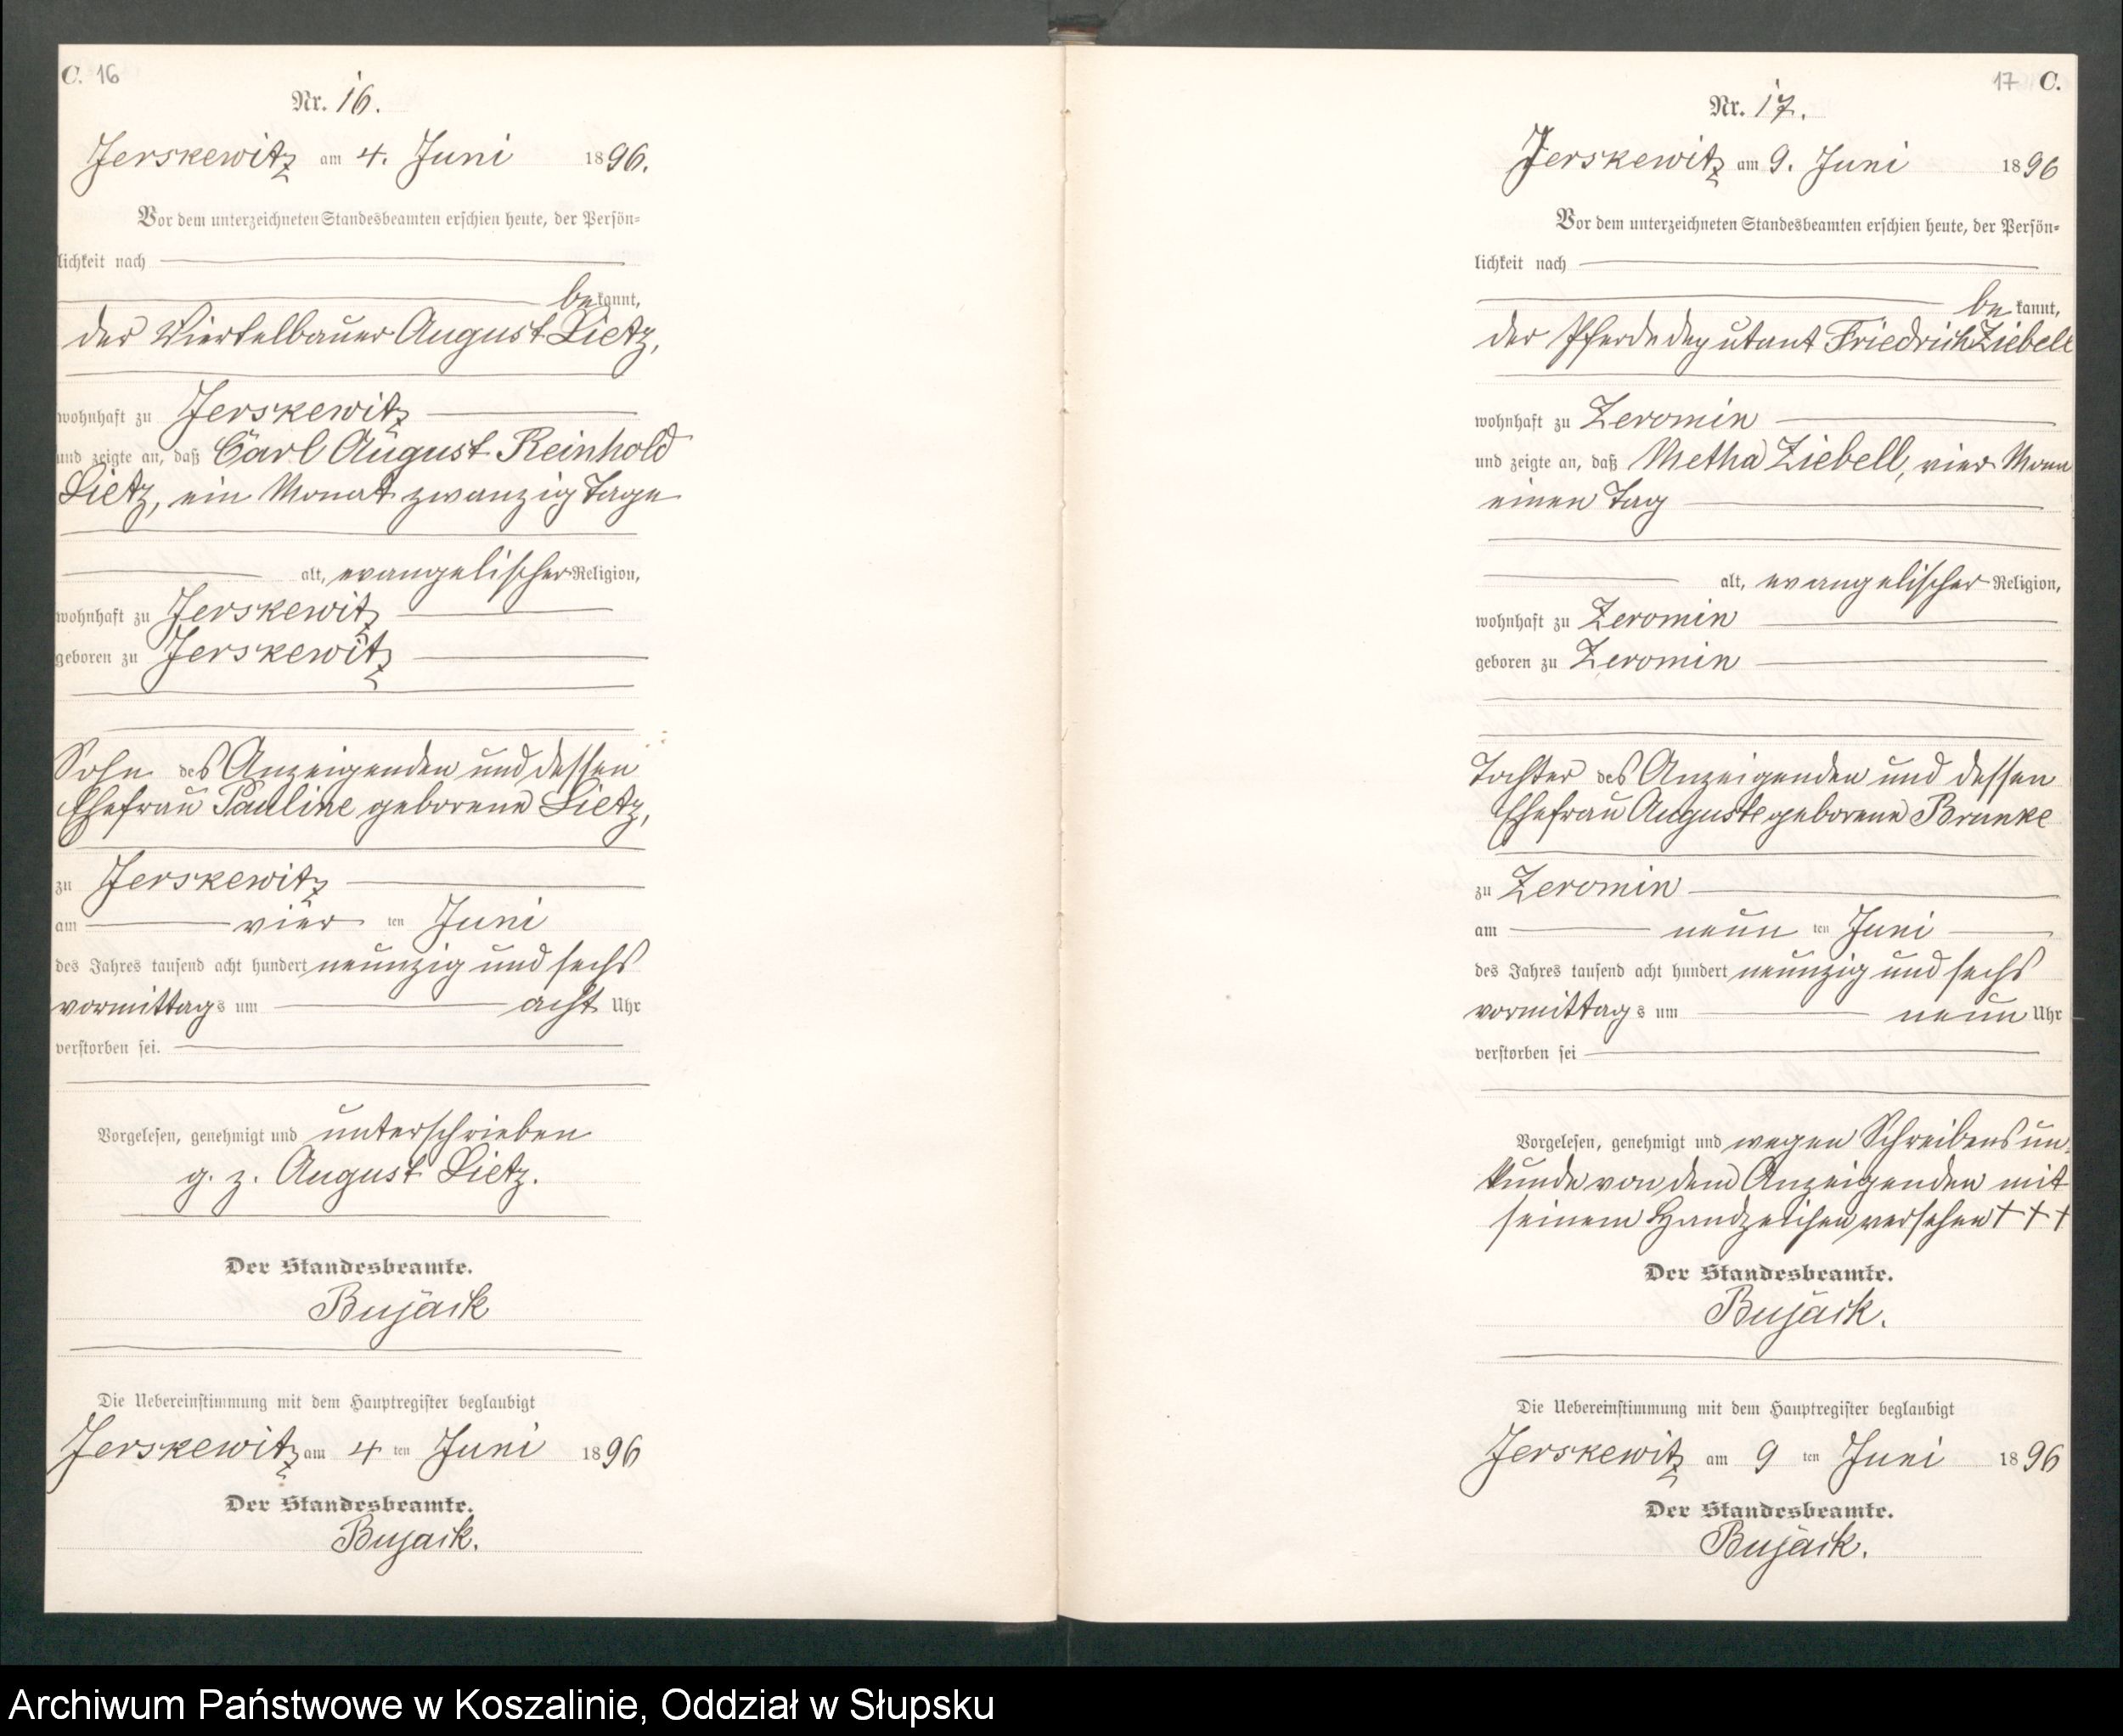 C. 16
Nr. 16.
Jerskewitz am 4. Juni 1896.
Vor dem unterzeichneten Standesbeamten erschien heute, der Persön-
lichkeit nach
bekannt,
der Viertelbauer August Lietz,
wohnhaft zu Jerskewitz
und zeigte an, daß Carl August Reinhold
Lietz, ein Monat zwanzig Tage
alt, evangelischer Religion,
wohnhaft zu Jerskewitz
geboren zu Jerskewitz
Sohn des Anzeigenden und dessen
Ehefrau Pauline geborene Lietz,
zu Jerskewitz
am vier ten Juni
des Jahres tausend acht hundert neunzig und sechs
vormittags um acht Uhr
verstorben sei.
Vorgelesen, genehmigt und unterschrieben
g. z. August Lietz.
Der Standesbeamte.
Bujack
Die Uebereinstimmung mit dem Hauptregister beglaubigt
Jerskewitz am 4 ten Juni 1896
Der Standesbeamte.
Bujack.
17 C.
Nr. 17.
Jerskewitz am 9. Juni 1896
Vor dem unterzeichneten Standesbeamten erschien heute, der Persön-
lichkeit nach
bekannt,
der Pferdedeputant Friedrich Ziebell
wohnhaft zu Zeromin
und zeigte an, daß Metha Ziebell, vier Mon
einen Tag
alt, evangelischer Religion,
wohnhaft zu Zeromin
geboren zu Zeromin
Tochter des Anzeigenden und dessen
Ehefrau Auguste geborene Brunke
zu Zeromin
am neun ten Juni
des Jahres tausend acht hundert neunzig und sechs
vormittags um neun Uhr
verstorben sei
Vorgelesen, genehmigt und wegen Schreibensun-
kunde von dem Anzeigenden mit
seinem Handzeichen versehen + + +
Der Standesbeamte.
Bujack.
Die Uebereinstimmung mit dem Hauptregister beglaubigt
Jerskewitz am 9 ten Juni 1896
Der Standesbeamte.
Bujack.
Archiwum Państwowe w Koszalinie, Oddział w Słupsku